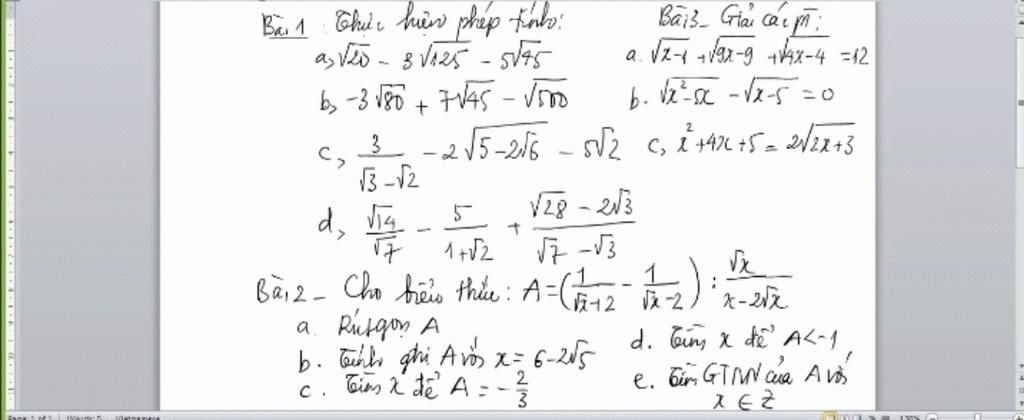 Bài 1 Thực hiện phép tính:
a, √20 - 3√125 - 5√45
b, -3√80 + 7√45 - √500
c, 3/(√3-√2) - 2√(5-2√6) - 5√2
d, √14/√7 - 5/(1+√2) + (√28 - 2√3)/(√7 - √3)
Bài 3_ Giải các pt:
a. √(x-1) + √(9x-9) + √(4x-4) = 12
b. √(x²-5x) - √(x-5) = 0
c, x²+4x+5 = 2√(2x+3)
Bài 2_ Cho biểu thức: A = (1/(√x+2) - 1/(√x-2)) : √x/(x-2√x)
a. Rút gọn A
b. Tính ghi A với x = 6-2√5
c. Tìm x để A = -2/3
d. Tìm x để A<-1
e. Tìm GTNN của A với
x ∈ Z
Page: 1 of 1 Words: 5 Vietnamese
130%